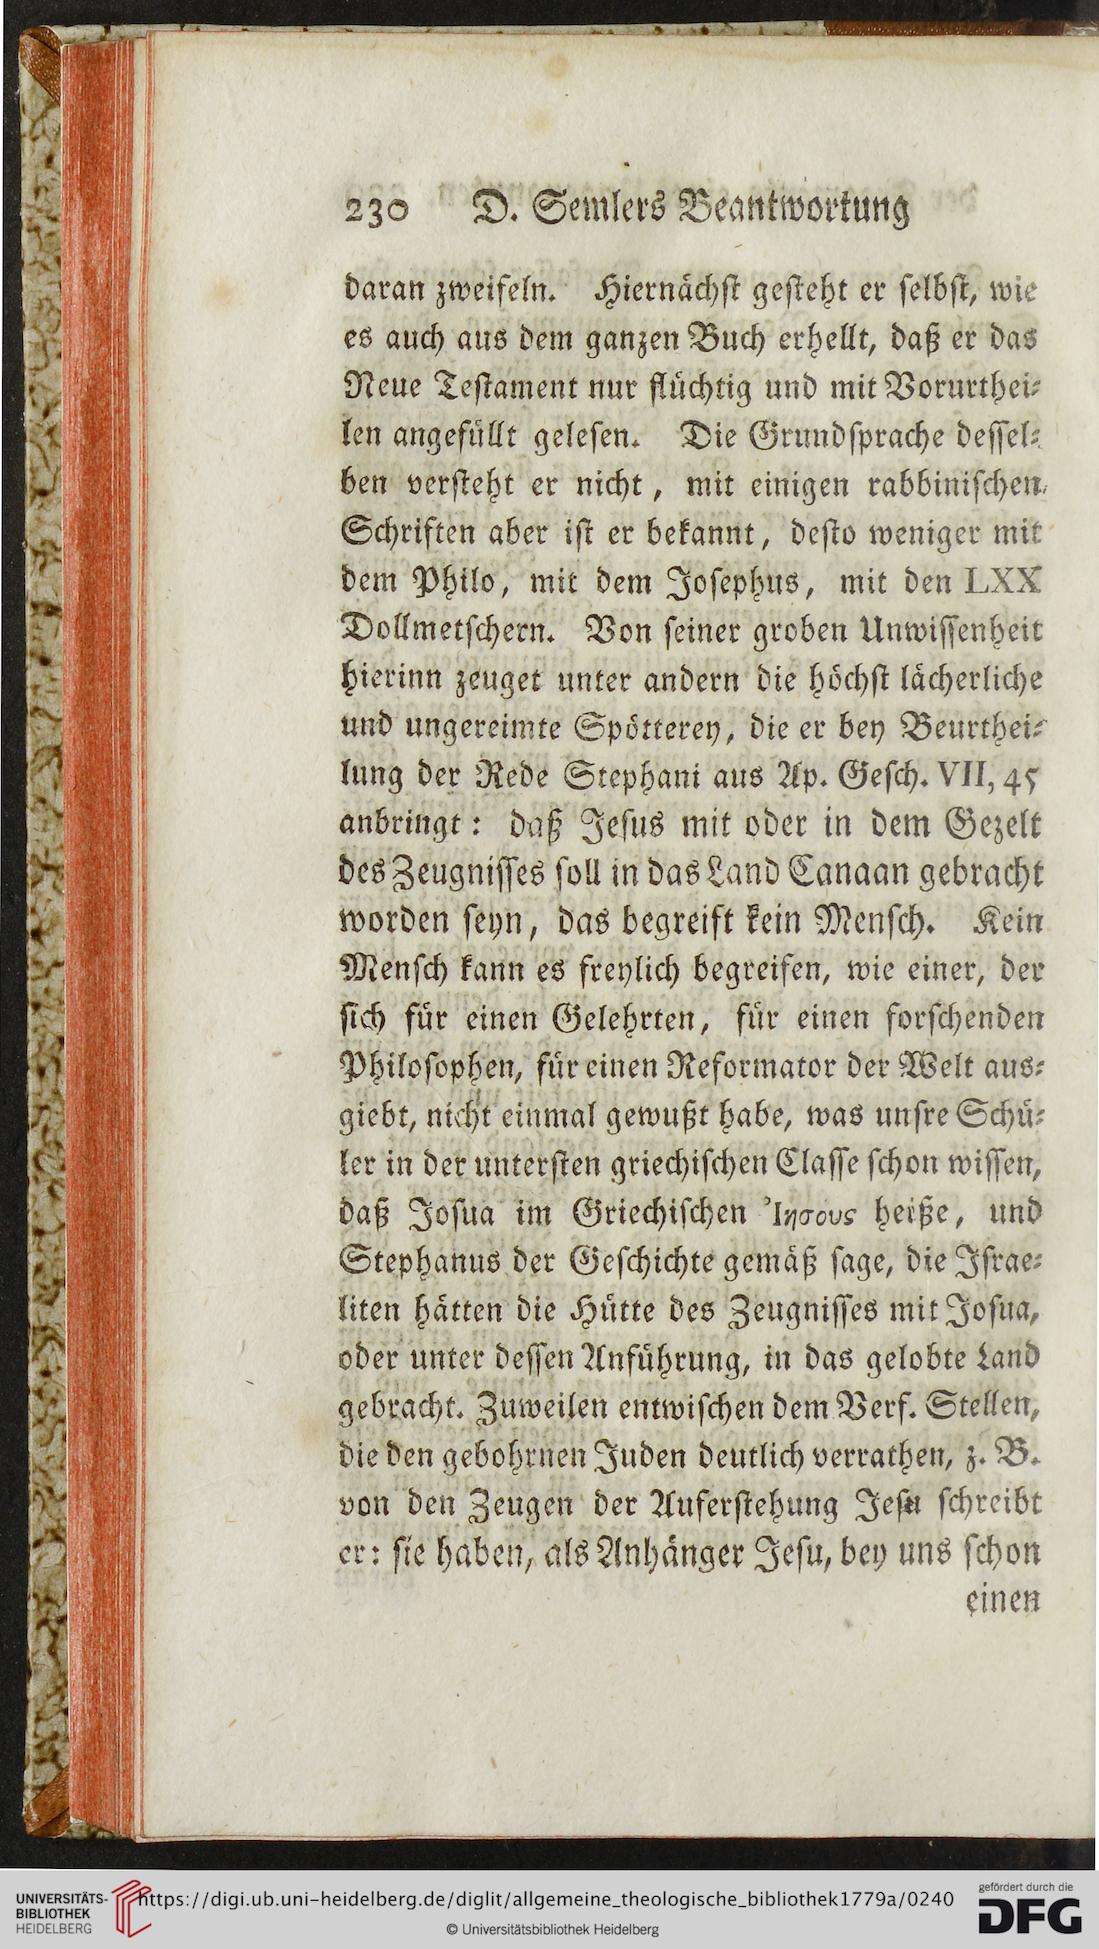 230 D. Semlers Beantwortung
daran zweifeln. Hiernächst gesteht er selbst, wie
es auch aus dem ganzen Buch erhellt, daß er das
Neue Testament nur flüchtig und mit Vorurthei-
len angefüllt gelesen. Die Grundsprache dessel-
ben versteht er nicht, mit einigen rabbinischen
Schriften aber ist er bekannt, desto weniger mit
dem Philo, mit dem Josephus, mit den LXX
Dollmetschern. Von seiner groben Unwissenheit
hierinn zeuget unter andern die höchst lächerliche
und ungereimte Spötterey, die er bey Beurthei-
lung der Rede Stephani aus Ap. Gesch. VII, 45
anbringt: daß Jesus mit oder in dem Gezelt
des Zeugnisses soll in das Land Canaan gebracht
worden seyn, das begreift kein Mensch. Kein
Mensch kann es freylich begreifen, wie einer, der
sich für einen Gelehrten, für einen forschenden
Philosophen, für einen Reformator der Welt aus-
giebt, nicht einmal gewußt habe, was unsre Schü-
ler in der untersten griechischen Classe schon wissen,
daß Josua im Griechischen Ἰησους heiße, und
Stephanus der Geschichte gemäß sage, die Israe-
liten hätten die Hütte des Zeugnisses mit Josua,
oder unter dessen Anführung, in das gelobte Land
gebracht. Zuweilen entwischen dem Verf. Stellen,
die den gebohrnen Juden deutlich verrathen, z. B.
von den Zeugen der Auferstehung Jesu schreibt
er: sie haben, als Anhänger Jesu, bey uns schon
einen
UNIVERSITÄTS-
BIBLIOTHEK
HEIDELBERG
https://digi.ub.uni-heidelberg.de/diglit/allgemeine_theologische_bibliothek1779a/0240
© Universitätsbibliothek Heidelberg
gefördert durch die
DFG